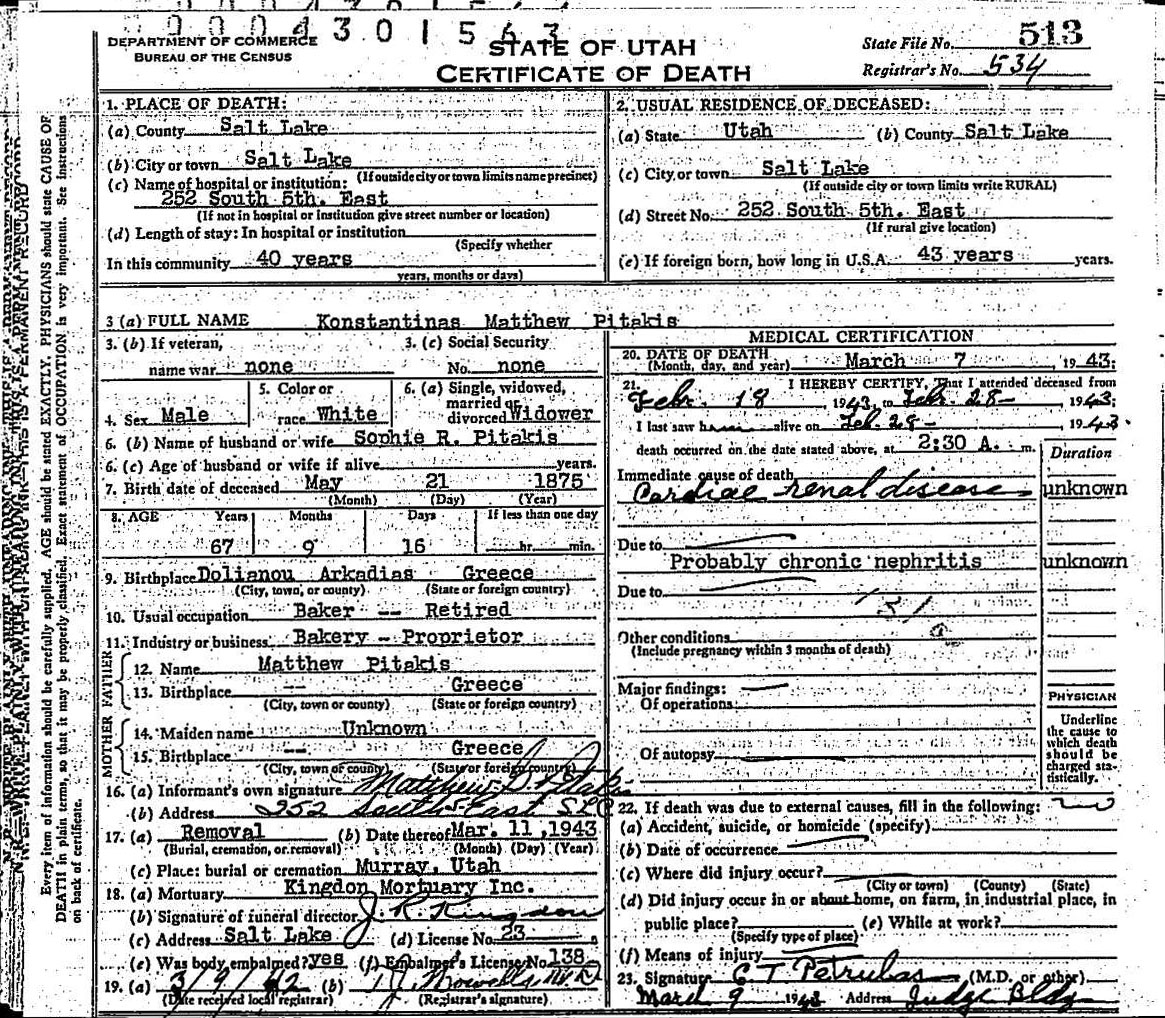 0004301563
DEPARTMENT OF COMMERCE
BUREAU OF THE CENSUS
STATE OF UTAH
CERTIFICATE OF DEATH
State File No. 513
Registrar's No. 534
1. PLACE OF DEATH:
(a) County Salt Lake
(b) City or town Salt Lake
(If outside city or town limits name precinct)
(c) Name of hospital or institution:
252 South 5th. East
(If not in hospital or institution give street number or location)
(d) Length of stay: In hospital or institution
(Specify whether
In this community 40 years
years, months or days)
2. USUAL RESIDENCE OF DECEASED:
(a) State Utah (b) County Salt Lake
(c) City or town Salt Lake
(If outside city or town limits write RURAL)
(d) Street No. 252 South 5th. East
(If rural give location)
(e) If foreign born, how long in U.S.A. 43 years years.
3 (a) FULL NAME Konstantinas Matthew Pitakis
3. (b) If veteran, 3. (c) Social Security
name war none No. none
4. Sex Male 5. Color or race White 6. (a) Single, widowed, married or divorced Widower
6. (b) Name of husband or wife Sophie R. Pitakis
6. (c) Age of husband or wife if alive years.
7. Birth date of deceased May 21 1875
(Month) (Day) (Year)
8. AGE Years Months Days If less than one day
67 9 16 hr. min.
9. Birthplace Dolianou Arkadias Greece
(City, town, or county) (State or foreign country)
10. Usual occupation Baker -- Retired
11. Industry or business Bakery - Proprietor
FATHER
12. Name Matthew Pitakis
13. Birthplace -- Greece
(City, town or county) (State or foreign country)
MOTHER
14. Maiden name Unknown
15. Birthplace -- Greece
(City, town or county) (State or foreign country)
16. (a) Informant's own signature Matthew Pitakis
(b) Address 252 South 5 East S.L.C
17. (a) Removal (b) Date thereof Mar. 11, 1943
(Burial, cremation, or removal) (Month) (Day) (Year)
(c) Place: burial or cremation Murray, Utah
18. (a) Mortuary Kingdon Mortuary Inc.
(b) Signature of funeral director J. R. Kingdon
(c) Address Salt Lake (d) License No. 23
(e) Was body embalmed? yes (f) Embalmer's License No. 138
19. (a) 3/9/42 (b) M.D.
(Date received local registrar) (Registrar's signature)
MEDICAL CERTIFICATION
20. DATE OF DEATH
(Month, day, and year) March 7 1943:
21. I HEREBY CERTIFY, That I attended deceased from
Febr. 18 1943, to Febr. 28- 1943;
I last saw him alive on Feb. 28- 1943.
death occurred on the date stated above, at 2:30 A. m.
Duration
Immediate cause of death
Cardiac renal disease unknown
Due to
Probably chronic nephritis unknown
Due to
131
a
Other conditions
(Include pregnancy within 3 months of death)
Major findings:
Of operations
Of autopsy
PHYSICIAN
Underline
the cause to
which death
should be
charged sta-
tistically.
22. If death was due to external causes, fill in the following: no
(a) Accident, suicide, or homicide (specify)
(b) Date of occurrence
(c) Where did injury occur?
(City or town) (County) (State)
(d) Did injury occur in or about home, on farm, in industrial place, in
public place? (e) While at work?
(Specify type of place)
(f) Means of injury
23. Signature C T Petrulas (M.D. or other)
March 9 1943 Address Judge Bldg
Every item of information should be carefully supplied. AGE should be stated EXACTLY. PHYSICIANS should state CAUSE OF
DEATH in plain terms, so that it may be properly classified. Exact statement of OCCUPATION is very important. See Instructions
on back of certificate.